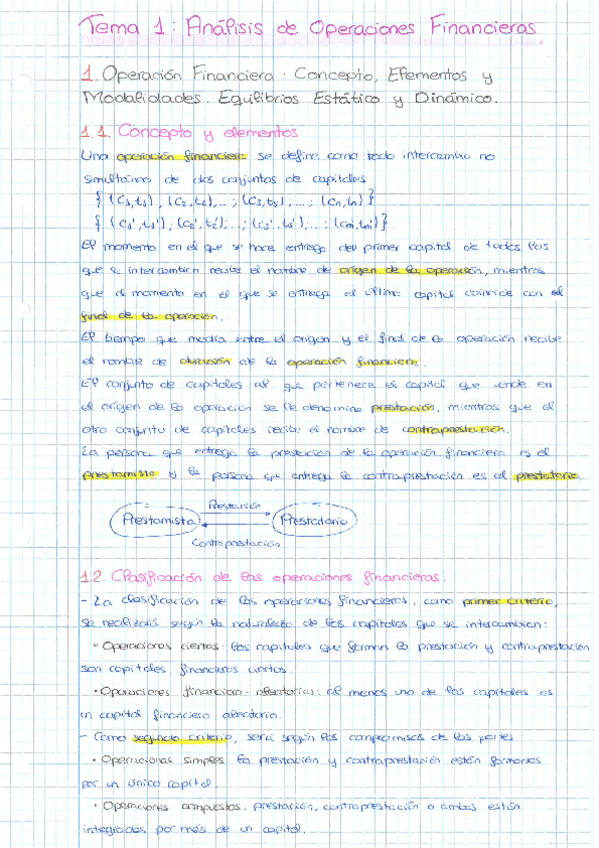 Tema 1: Análisis de Operaciones Financieras
1. Operación Financiera: Concepto, Elementos y
Modalidades. Equilibrios Estático y Dinámico.
1.1. Concepto y elementos
Una operación financiera se define como todo intercambio no
simultáneo de dos conjuntos de capitales
{ (C₁,t₁) , (C₂,t₂),... ; (C₃,t₃) ,... ; (Cn,tn)}
{ (C₁',t₁') , (C₂',t₂');...; (C₃',t₃');... ; (Cm',tm')}
El momento en el que se hace entrega del primer capital de todos los
que se intercambian recibe el nombre de origen de la operación, mientras
que el momento en el que se entrega el último capital coincide con el
final de la operación.
El tiempo que media entre el origen y el final de la operación recibe
el nombre de duración de la operación financiera.
El conjunto de capitales al que pertenece el capital que vende en
el origen de la operación se le denomina prestación, mientras que el
otro conjunto de capitales recibe el nombre de contraprestación.
La persona que entrega la prestación de la operación financiera es el
prestamista y la persona que entrega la contraprestación es el prestatario.
Prestación
Prestamista Prestatario
Contraprestación
1.2. Clasificación de las operaciones financieras.
- La clasificación de las operaciones financieras, como primer criterio,
se realizará según la naturaleza de los capitales que se intercambian:
• Operaciones ciertas: los capitales que forman la prestación y contraprestación
son capitales financieros ciertos.
• Operaciones financiero-aleatorias: al menos uno de los capitales es
un capital financiero aleatorio.
- Como segundo criterio, será según los compromisos de las partes
• Operaciones simples: la prestación y contraprestación están formadas
por un único capital.
• Operaciones compuestas: prestación, contraprestación o ambas están
integradas por más de un capital.